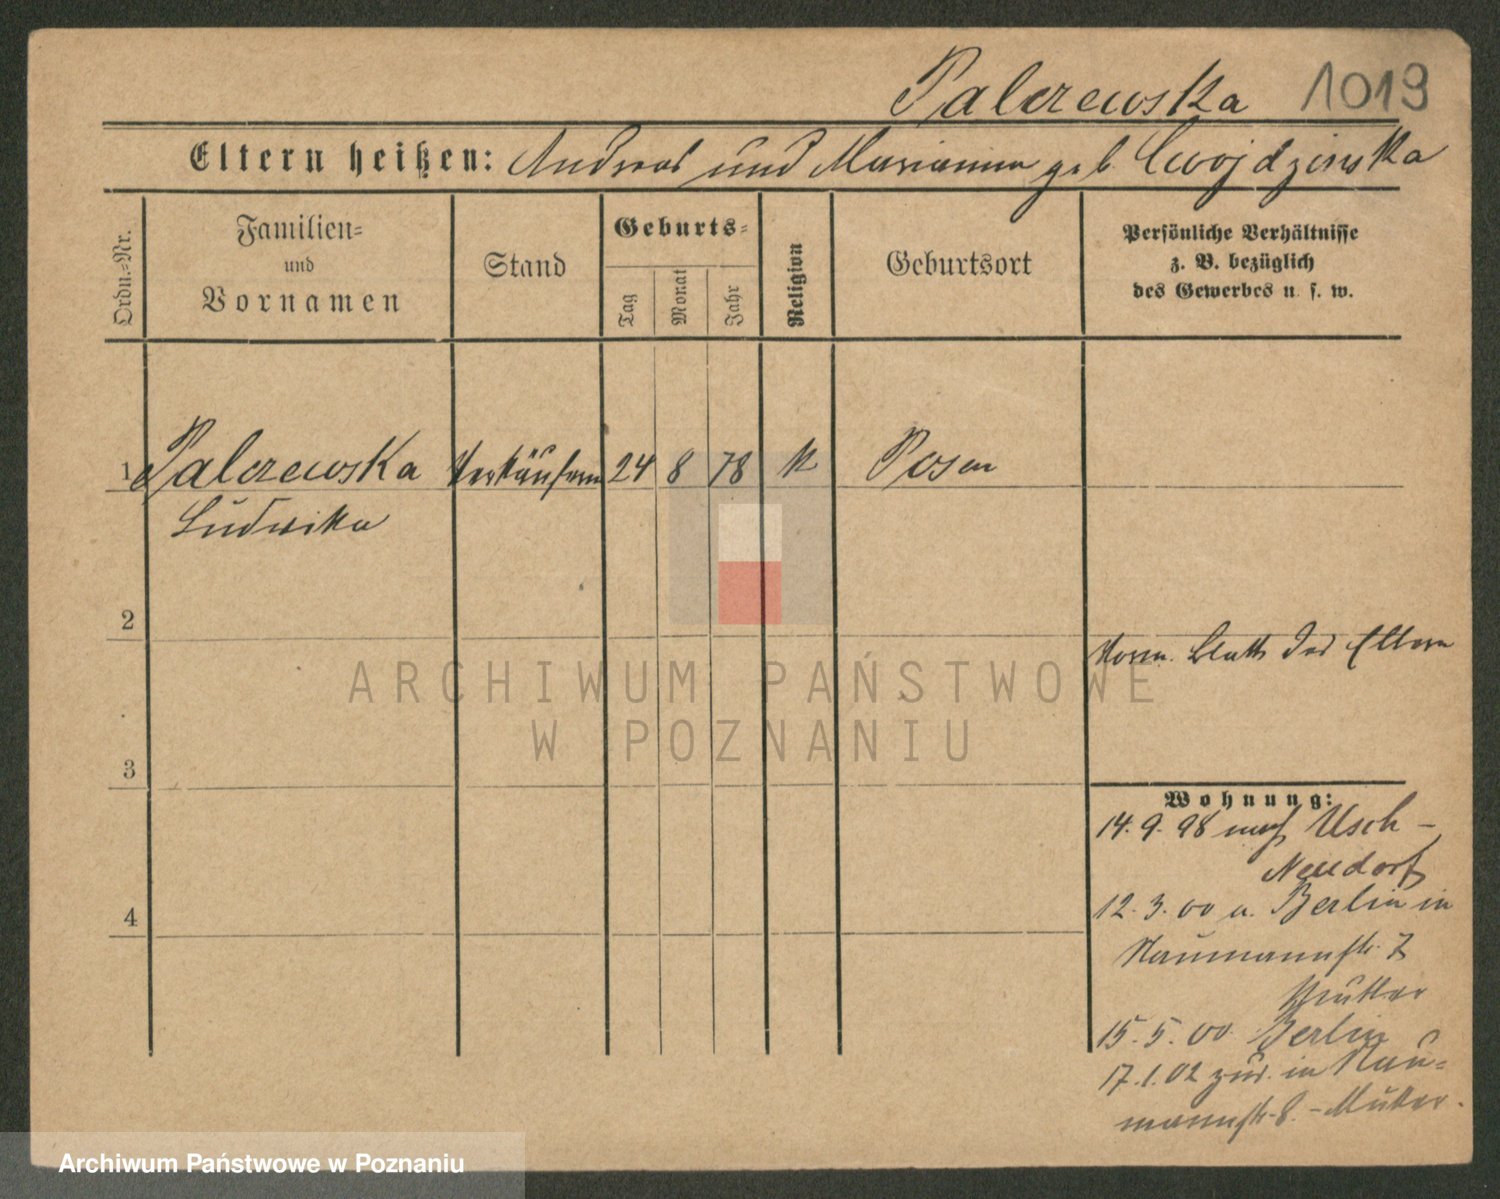 Palczewska 1019
Eltern heißen: Andreas und Marianna geb. Cwojdzinska
Ordn.-Nr.
Familien-
und
Vornamen
Stand
Geburts-
Tag
Monat
Jahr
Religion
Geburtsort
Persönliche Verhältnisse
z. B. bezüglich
des Gewerbes u. s. w.
1 Palczewska Verkäuferin 24 8 78 k Posen
Ludwika
2
Vorm. Blatt der Eltern
ARCHIWUM PAŃSTWOWE
W POZNANIU
3
Wohnung:
14. 9. 98 nach Usch-
Neudorf
4
12. 3. 00 v. Berlin in
Naumannstr. 7
Mutter
15. 5. 00 Berlin
17. 1. 02 zur. in Nau-
mannstr. 8. - Mutter.
Archiwum Państwowe w Poznaniu